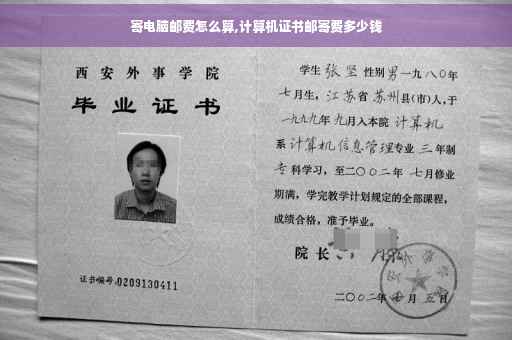 寄电脑邮费怎么算,计算机证书邮寄费多少钱
西安外事学院
毕业证书
证书编号:0209130411
学生 张坚 性别 男 一九八〇年
七月生, 江苏省 苏州县(市)人,于
一九九九年 九月入本院 计算机
系 计算机信息管理专业 三年制
专科学习, 至二〇〇二年 七月修业
期满, 学完教学计划规定的全部课程,
成绩合格, 准予毕业。
院长
二〇〇二年 月 五日